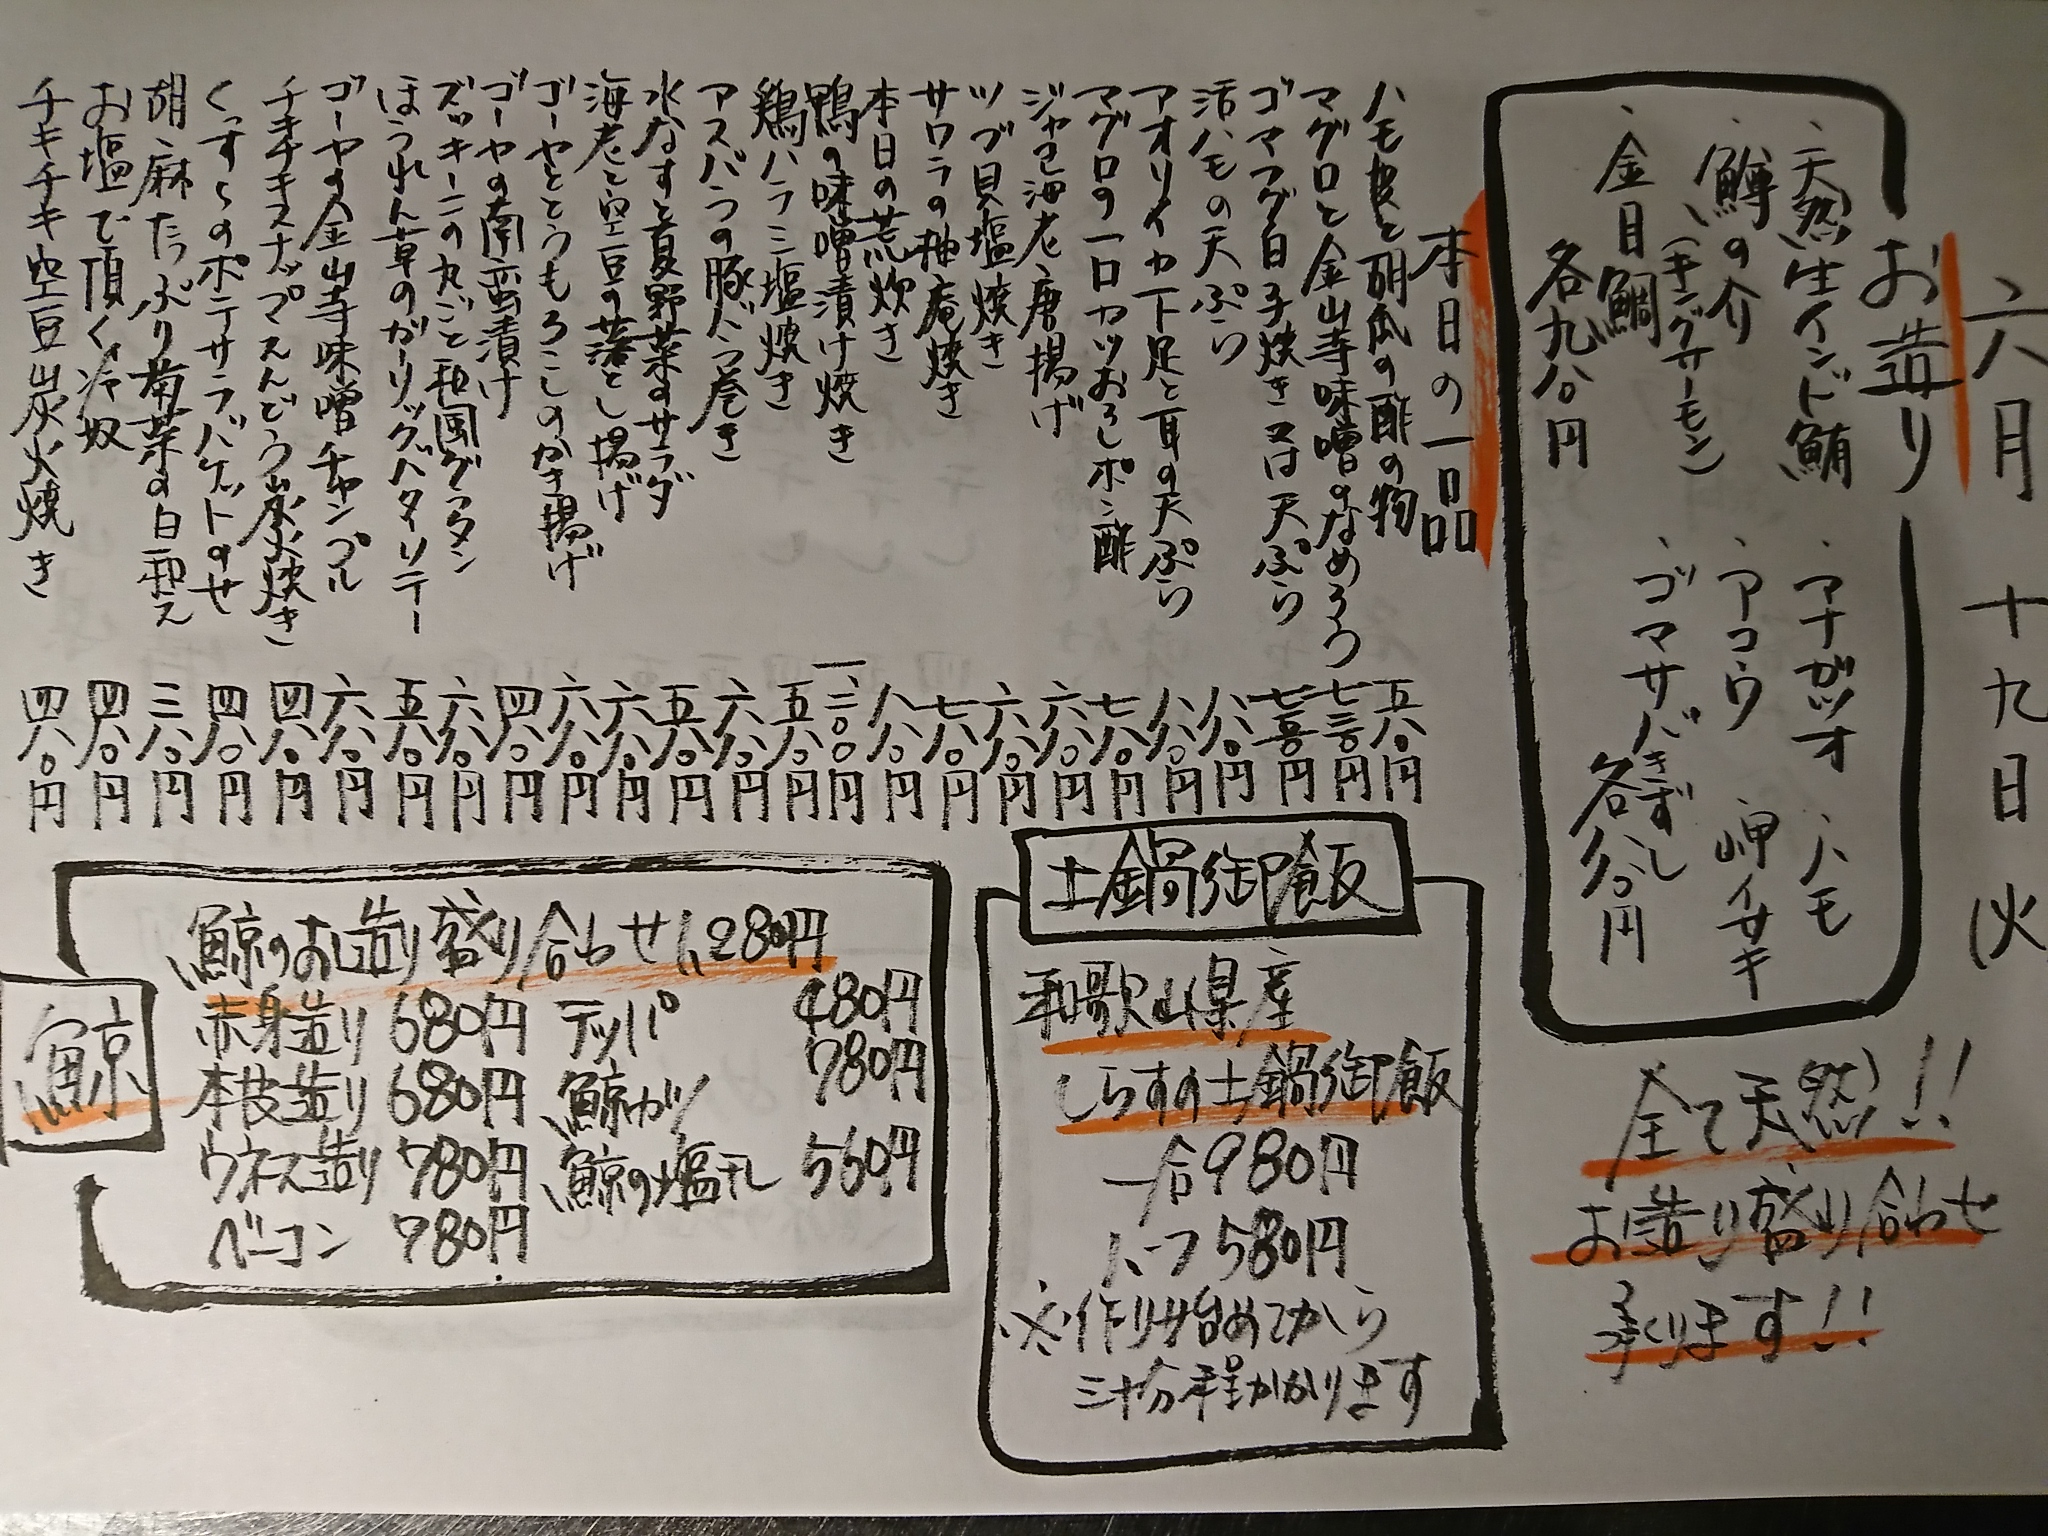 六月 十九日 火
お造り
、天然生インド鮪
、鱒の介
(キングサーモン)
、金目鯛
各九八〇円
、マナガツオ 、ハモ
、アコウ 、岬イサキ
、ゴマサバきずし
各八八〇円
全て天然!!
お造り盛り合わせ
承ります!!
本日の一品
ハモ皮と胡瓜の酢の物 五八〇円
マグロと金山寺味噌のなめろう 七三〇円
ゴマフグ白子焼き又は天ぷら
活ハモの天ぷら 八八〇円
アオリイカ下足と耳の天ぷら 八八〇円
マグロの一口カツおろしポン酢 七八〇円
ジャコ海老唐揚げ 六八〇円
ツブ貝塩焼き 六八〇円
サワラの柚庵焼き 七八〇円
本日の荒炊き 八八〇円
鴨の味噌漬け焼き
鶏ハラミ塩焼き 五八〇円
アスパラの豚バラ巻き 六八〇円
水なすと夏野菜のサラダ 五八〇円
海老と空豆の落とし揚げ 六八〇円
ゴーヤととうもろこしのかき揚げ 六八〇円
ゴーヤの南蛮漬け 四八〇円
ズッキーニの丸ごと和風グラタン 六八〇円
ほうれん草のガーリックバタリテー 五八〇円
ゴーヤの金山寺味噌チャンプル 六八〇円
チキチキスナップえんどう炭火焼き 四八〇円
くっすらのポテサラバケットのせ 四八〇円
胡麻たっぷり菊菜の白和え 三八〇円
お塩で頂く冷奴 四八〇円
チキチキ空豆炭火焼き 四八〇円
土鍋御飯
和歌山県産
しらすの土鍋御飯
一合980円
ハーフ580円
※作り始めてから
三十分程かかります
鯨
鯨のお造り盛り合わせ1,280円
赤身造り 680円 テッパ 480円
本皮造り 680円 鯨カツ 780円
ウネス造り 780円 鯨の塩干し 560円
ベーコン 780円